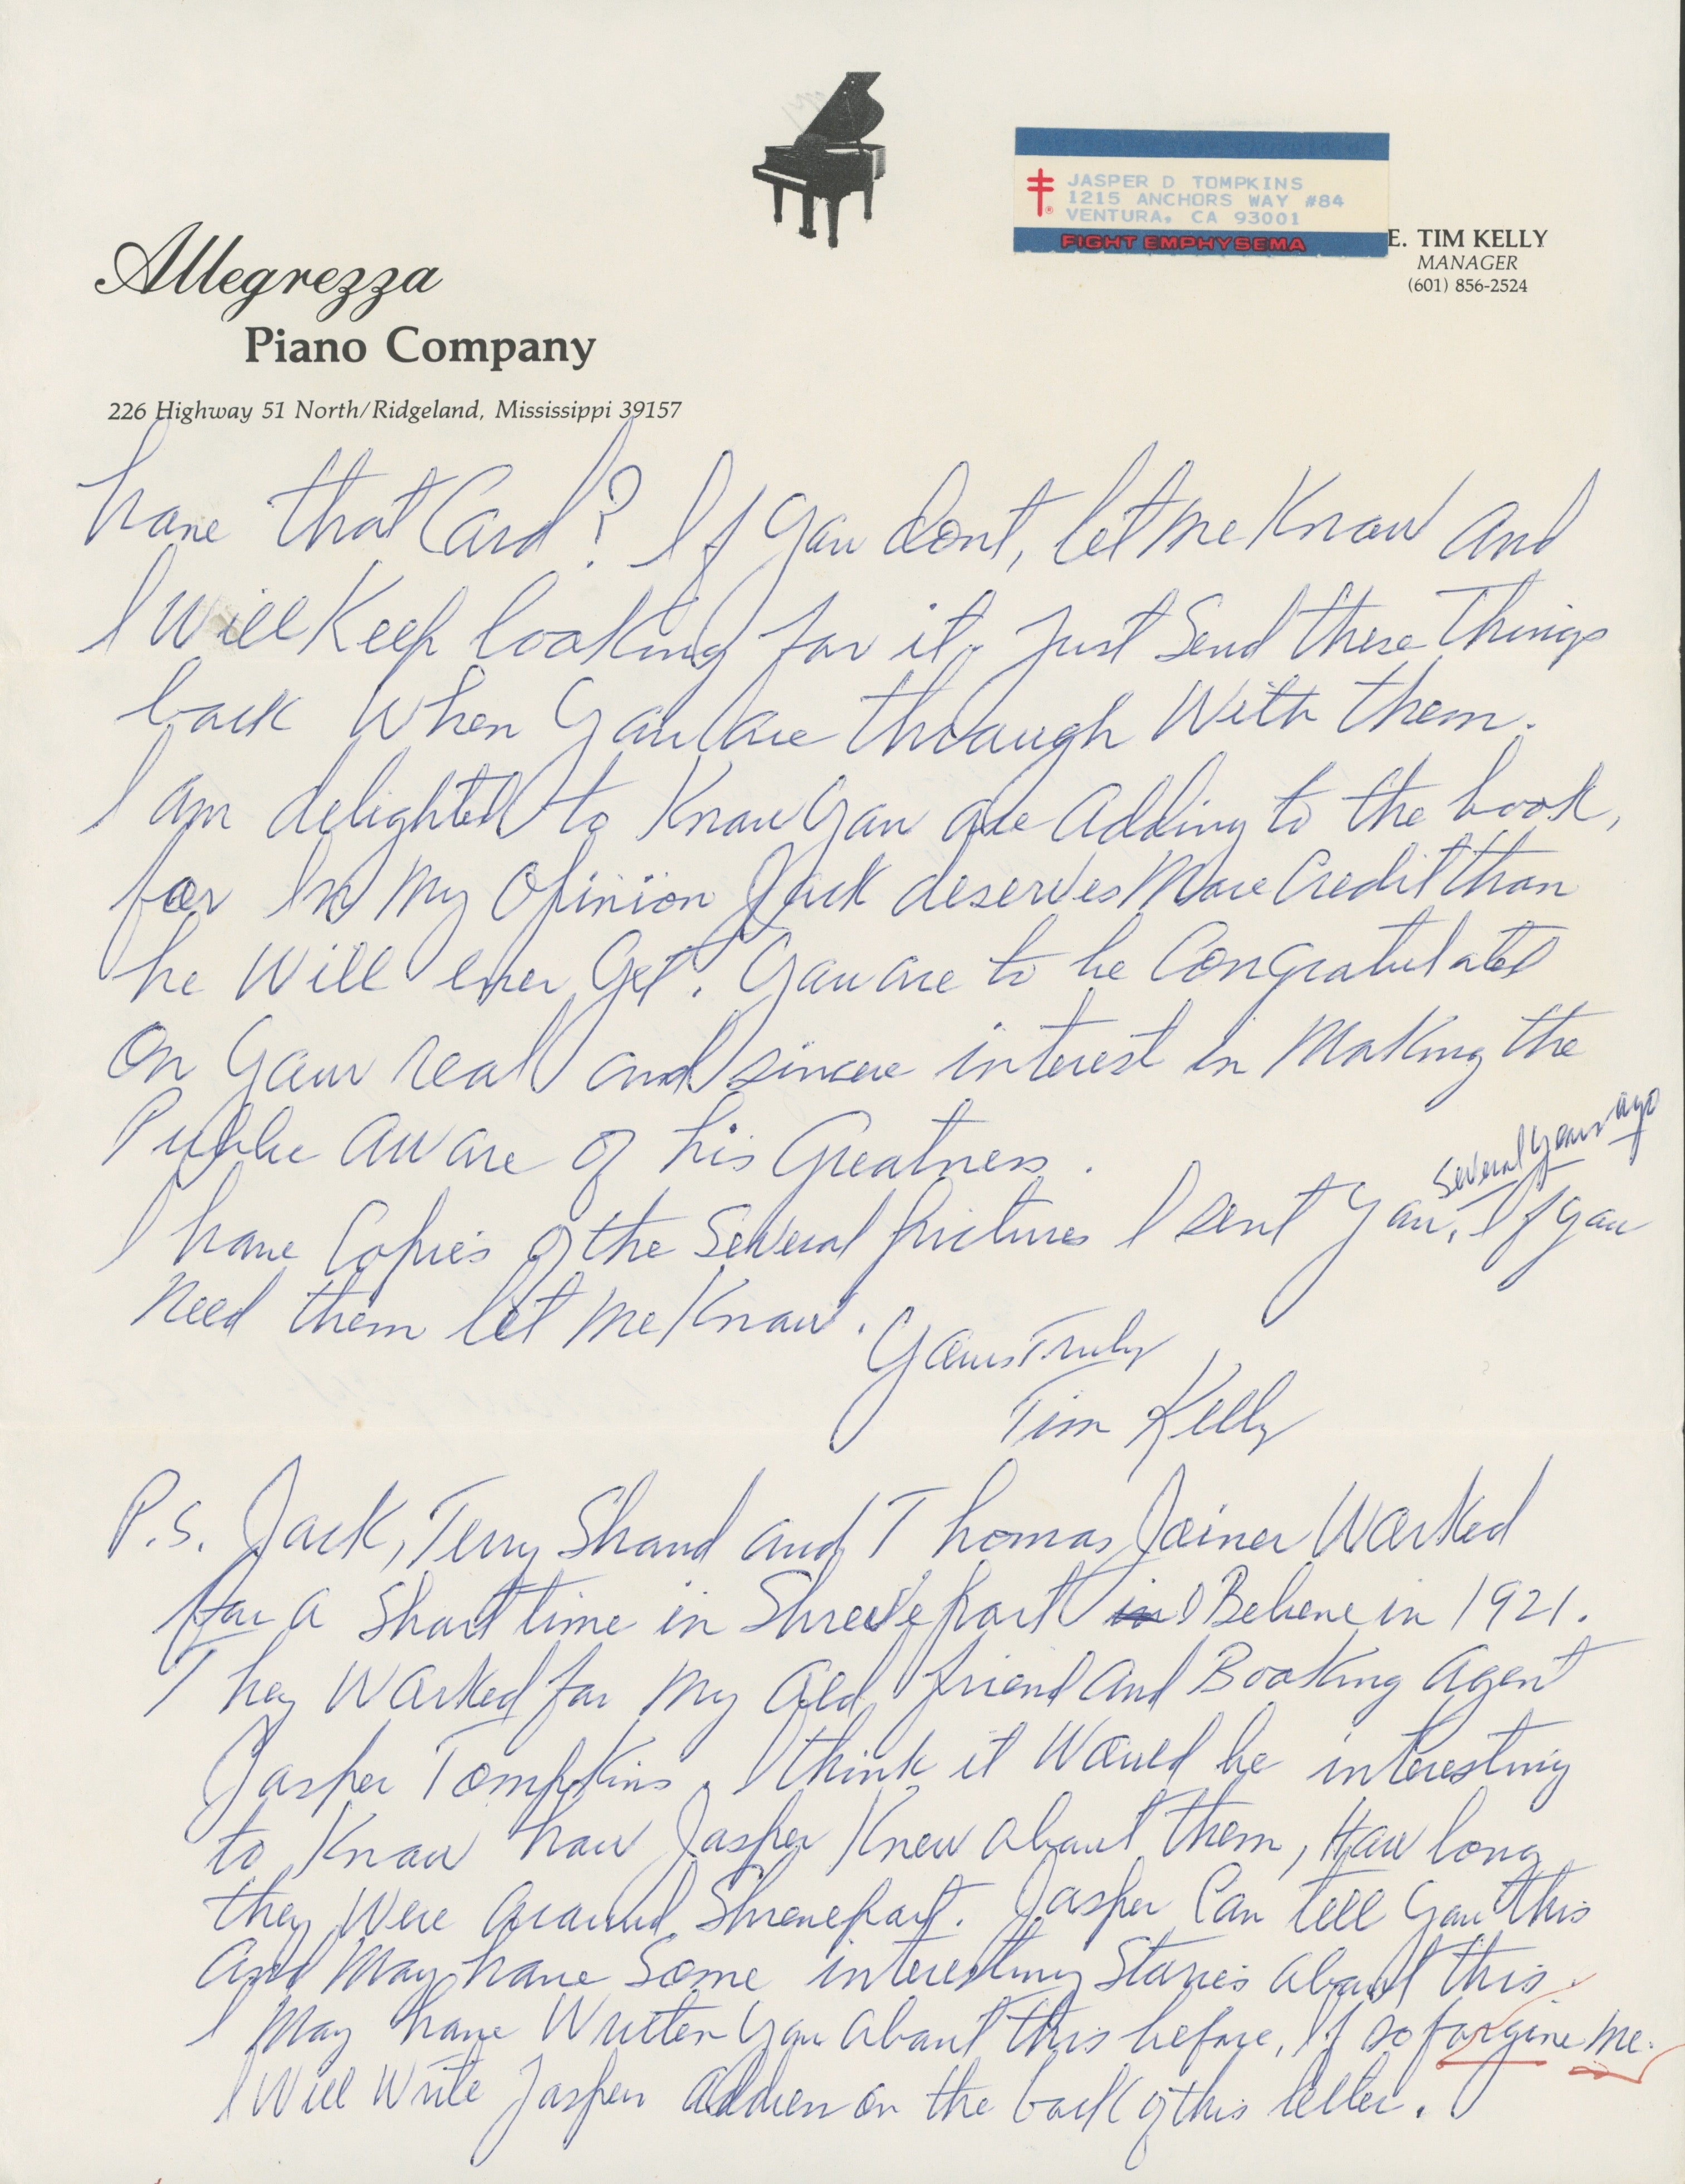 JASPER D TOMPKINS
1215 ANCHORS WAY #84
VENTURA, CA 93001
FIGHT EMPHYSEMA
E. TIM KELLY
MANAGER
(601) 856-2524
Allegrezza
Piano Company
226 Highway 51 North/Ridgeland, Mississippi 39157
have that Card? If you dont, let me know and
I will keep looking for it. Just send these things
back when you are through with them.
I am delighted to know you are adding to the book,
for in my opinion Jack deserves more credit than
he will ever get. You are to be congratulated
on your real and sincere interest in making the
Public aware of his Greatness.
several years ago
I have copies of the several pictures I sent you. If you
need them let me know.
Yours Truly
Tim Kelly
P.S. Jack, Terry Shand and Thomas Joiner worked
for a short time in Shreveport in I Believe in 1921.
They worked for my old friend and Booking agent
Jasper Tompkins. I think it would be interesting
to know how Jasper knew about them, How long
they were around Shreveport. Jasper can tell you this
and may have some interesting stories about this.
I may have written you about this before, If so forgive me.
I will write Jasper address on the back of this letter.